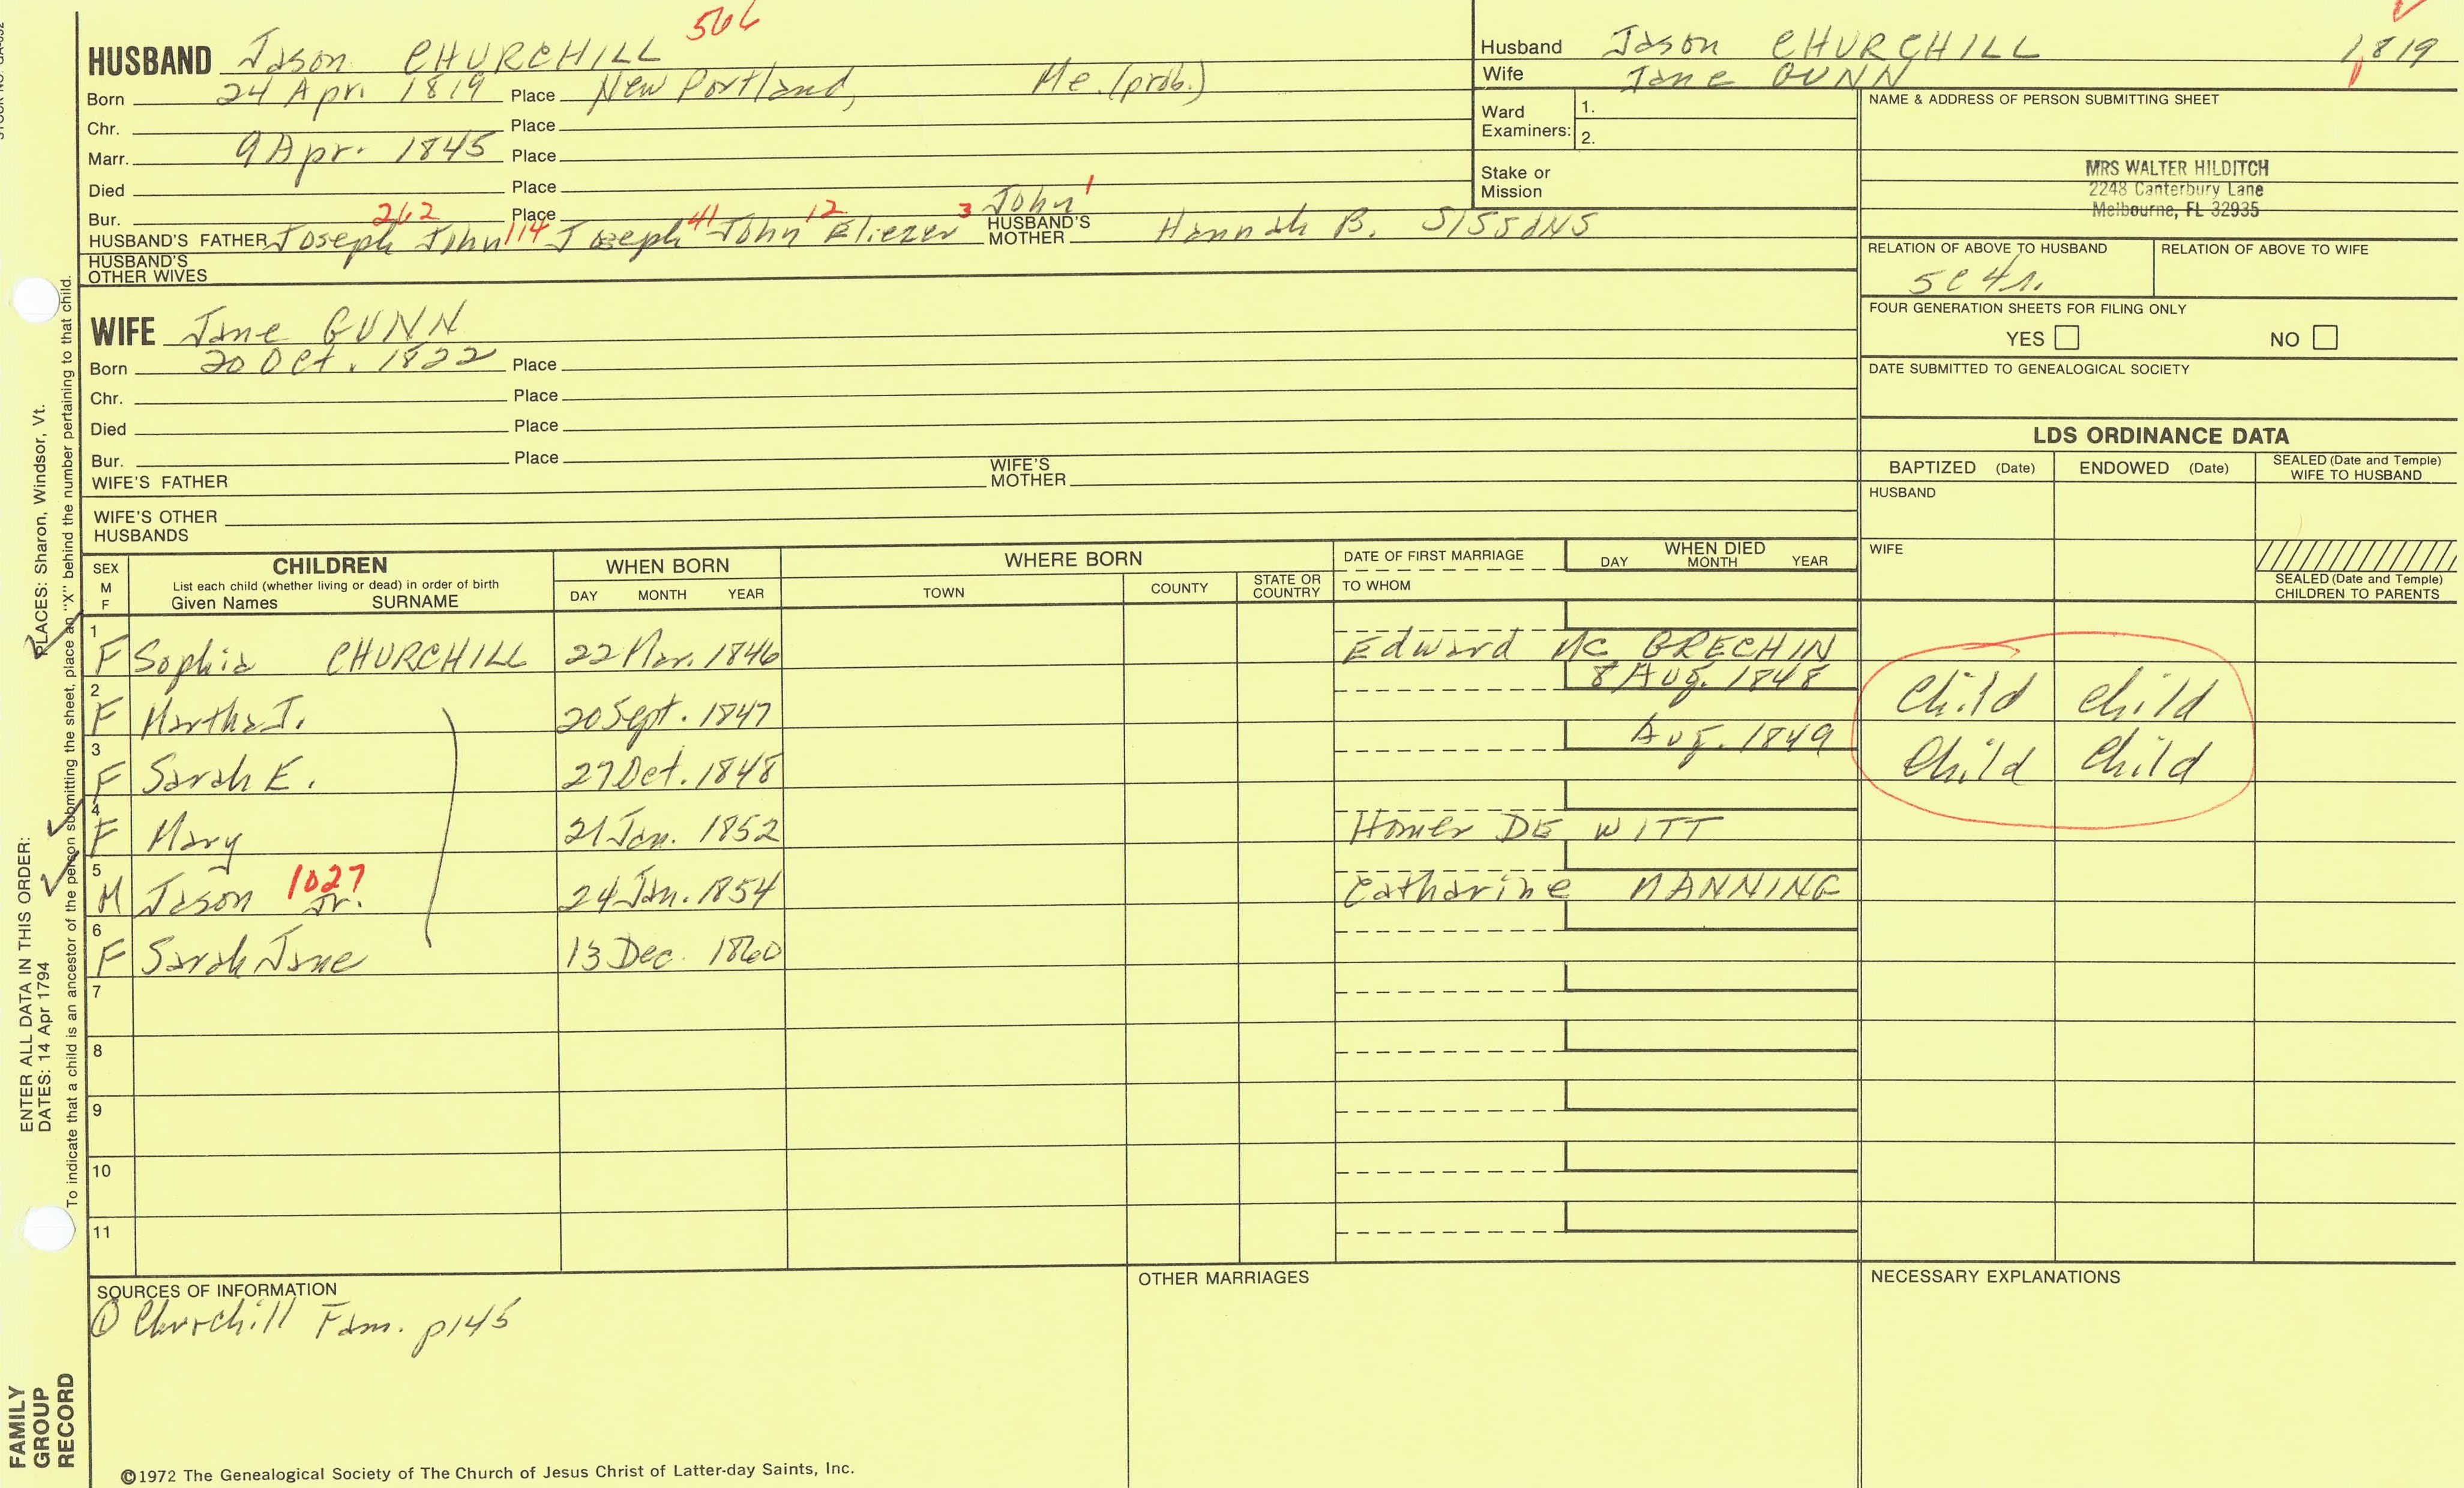 HUSBAND Jason CHURCHILL 506
Born 24 Apr. 1819 Place New Portland, Me. (prob.)
Chr. Place
Marr. 9 Apr. 1845 Place
Died Place
Bur. Place
HUSBAND'S FATHER Joseph 262 John 114 Joseph 41 John 12 Eliezer 3 John 1 HUSBAND'S MOTHER Hannah B. SISSONS
HUSBAND'S OTHER WIVES
WIFE Jane GUNN
Born 20 Oct. 1822 Place
Chr. Place
Died Place
Bur. Place
WIFE'S FATHER WIFE'S MOTHER
WIFE'S OTHER HUSBANDS
Husband Jason CHURCHILL 1819
Wife Jane GUNN
Ward Examiners: 1.
2.
Stake or Mission
NAME & ADDRESS OF PERSON SUBMITTING SHEET
MRS WALTER HILDITCH
2248 Canterbury Lane
Melbourne, FL 32935
RELATION OF ABOVE TO HUSBAND RELATION OF ABOVE TO WIFE
5C4r.
FOUR GENERATION SHEETS FOR FILING ONLY
YES NO
DATE SUBMITTED TO GENEALOGICAL SOCIETY
LDS ORDINANCE DATA
BAPTIZED (Date) ENDOWED (Date) SEALED (Date and Temple) WIFE TO HUSBAND
HUSBAND
WIFE
SEALED (Date and Temple) CHILDREN TO PARENTS
SEX M F
CHILDREN
List each child (whether living or dead) in order of birth
Given Names SURNAME
WHEN BORN
DAY MONTH YEAR
WHERE BORN
TOWN COUNTY STATE OR COUNTRY
DATE OF FIRST MARRIAGE
TO WHOM
WHEN DIED
DAY MONTH YEAR
1 F Sophia CHURCHILL 22 Mar. 1846 Edward Mc BRECHIN
2 F Martha J. 20 Sept. 1847 8 Aug. 1848 Child Child
3 F Sarah E. 27 Oct. 1848 Aug. 1849 Child Child
4 F Mary 21 Jan. 1852 Homer DE WITT
5 M Jason Jr. 1027 24 Jan. 1854 Catharine MANNING
6 F Sarah Jane 13 Dec. 1860
7
8
9
10
11
SOURCES OF INFORMATION
① Churchill Fam. p145
OTHER MARRIAGES
NECESSARY EXPLANATIONS
©1972 The Genealogical Society of The Church of Jesus Christ of Latter-day Saints, Inc.
FAMILY GROUP RECORD
ENTER ALL DATA IN THIS ORDER:
DATES: 14 Apr 1794 PLACES: Sharon, Windsor, Vt.
To indicate that a child is an ancestor of the person submitting the sheet, place an "X" behind the number pertaining to that child.